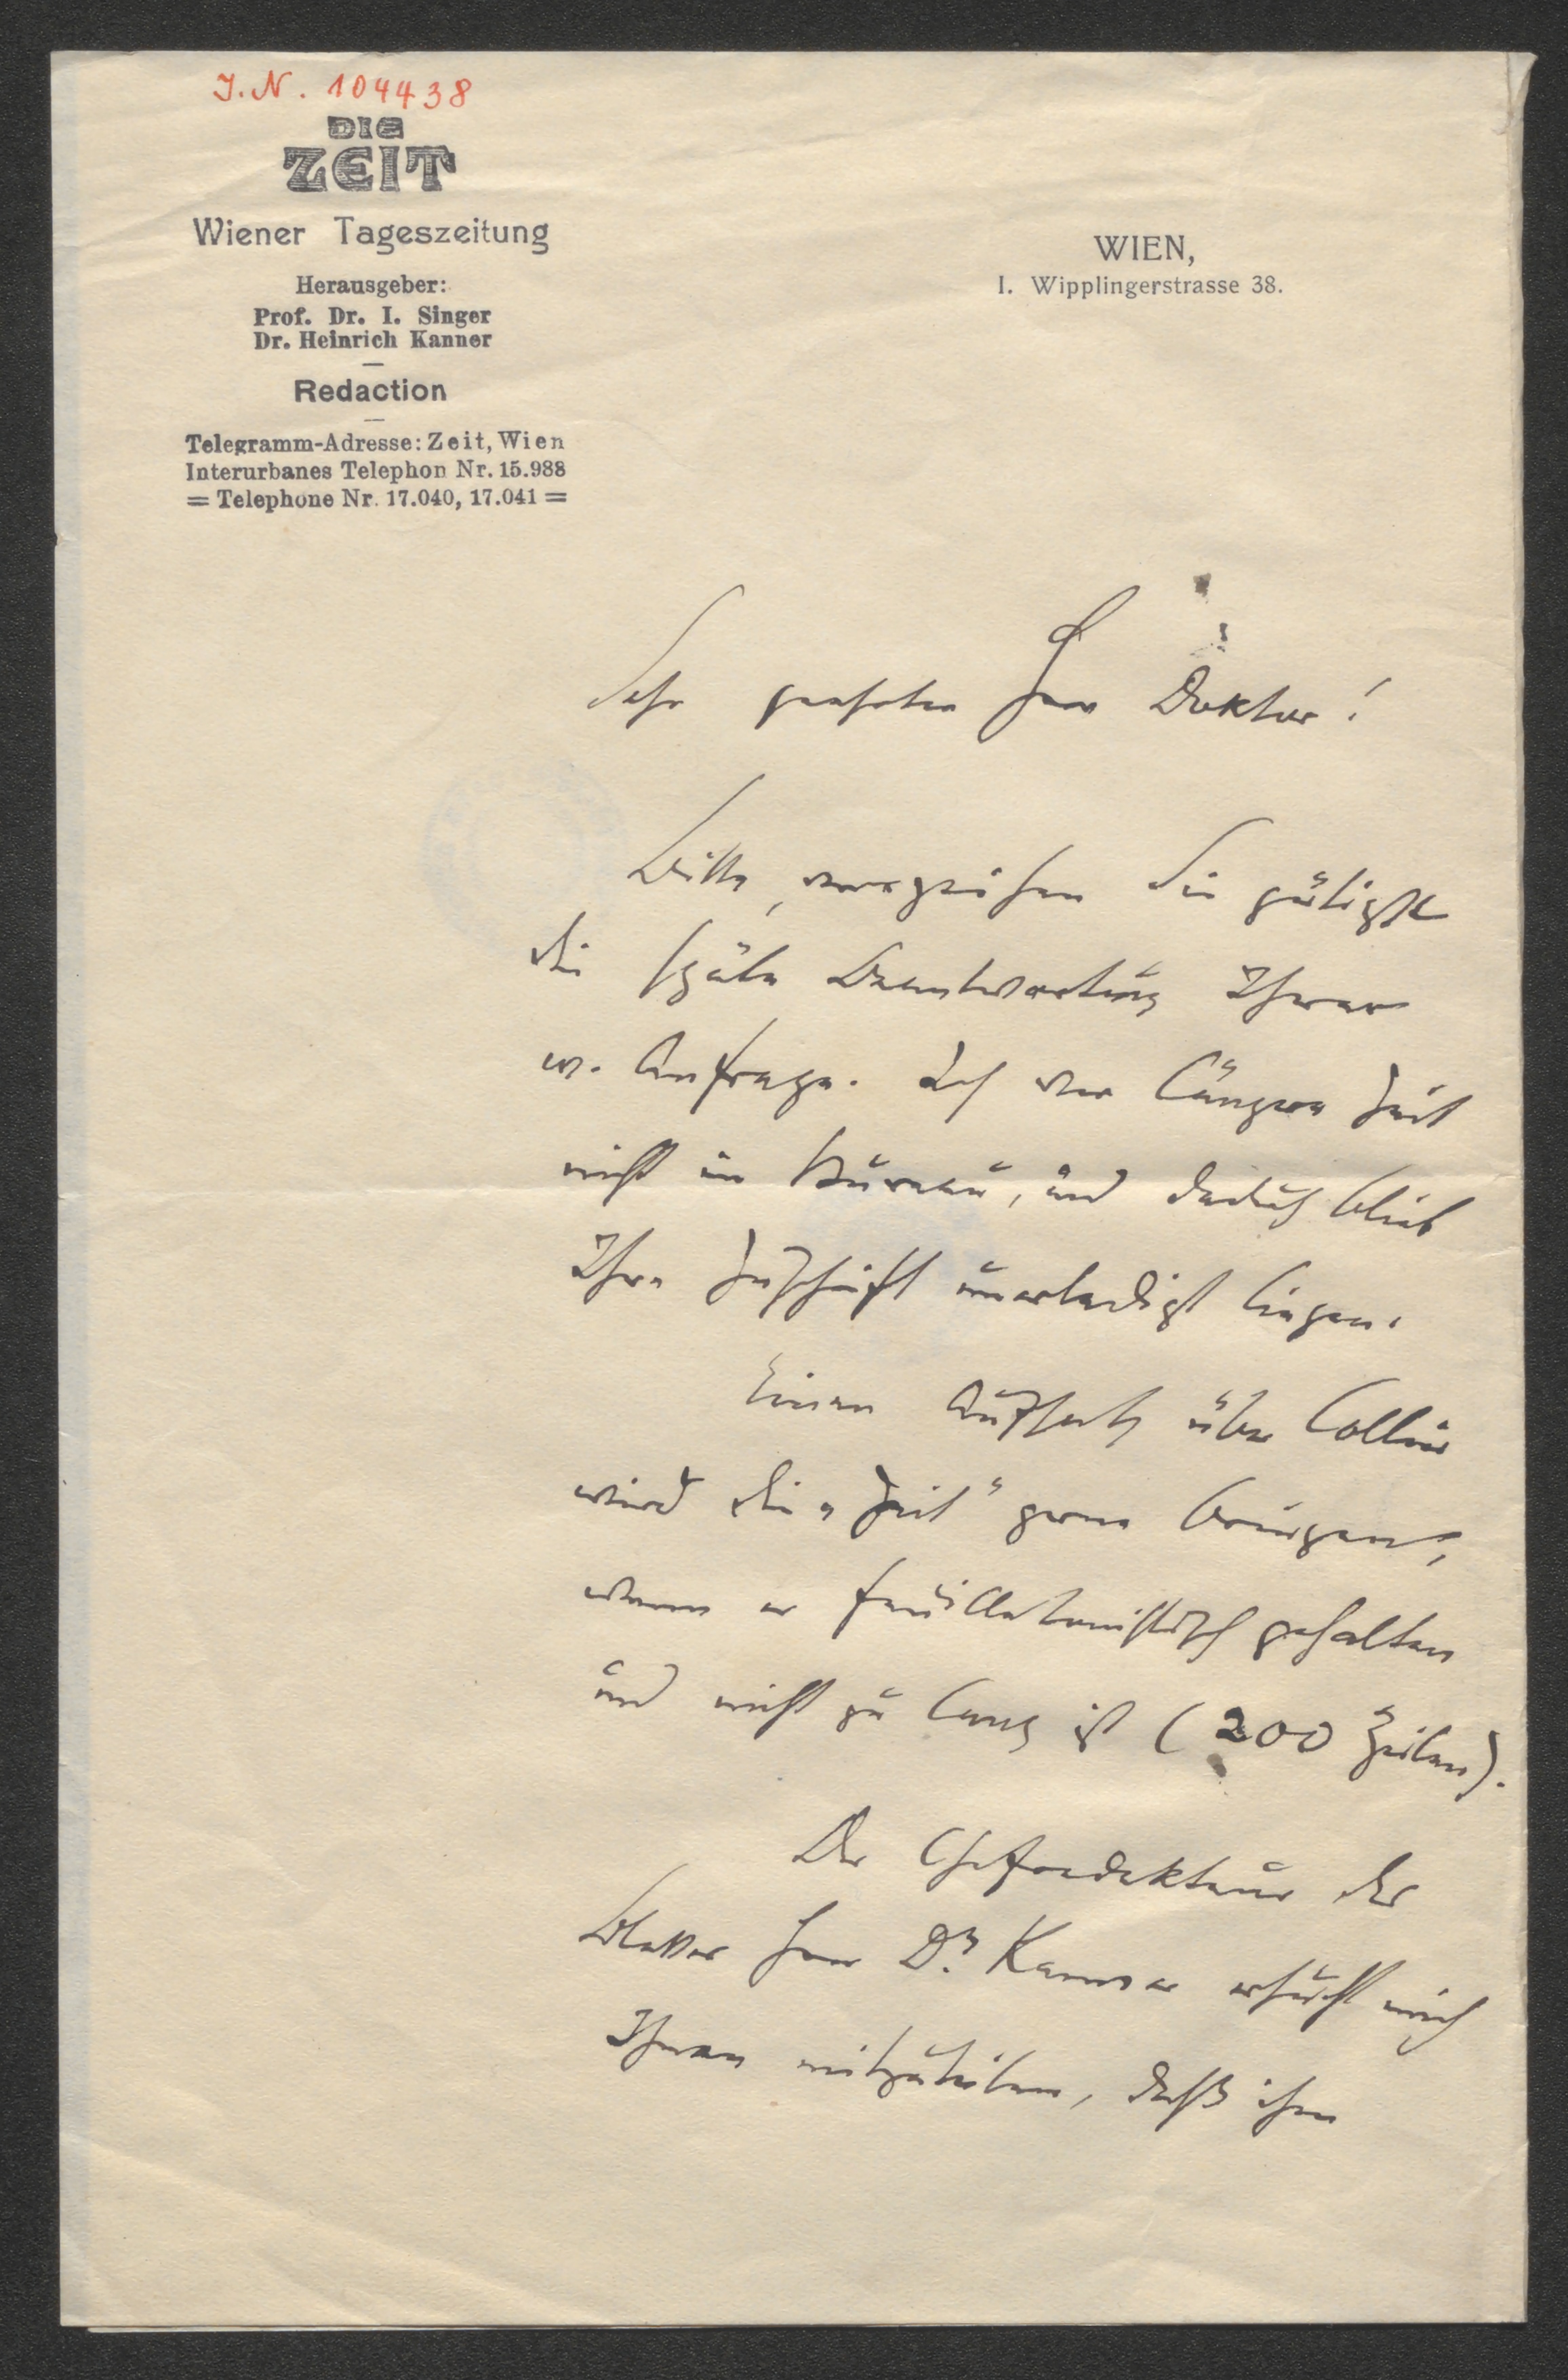 J.N. 104438
DIE
ZEIT
Wiener Tageszeitung
Herausgeber:
Prof. Dr. I. Singer
Dr. Heinrich Kanner
Redaction
Telegramm-Adresse: Zeit, Wien
Interurbanes Telephon Nr. 15.988
= Telephone Nr. 17.040, 17.041 =
WIEN,
I. Wipplingerstrasse 38.
Sehr geehrter Herr Doktor!
Bitte, verzeihen Sie gütigst
die späte Beantwortung Ihrer
w. Anfrage. Ich war längere Zeit
nicht im Bureau, und dadurch blieb
Ihre Zuschrift unerledigt liegen.
Einen Aufsatz über Collin
wird die „Zeit" gerne bringen,
wenn er feuilletonistisch gehalten
und nicht zu lang ist (200 Zeilen).
Der Chefredakteur des
Blattes Herr Dr. Kanner ersucht mich
Ihnen mitzuteilen, daß ihm